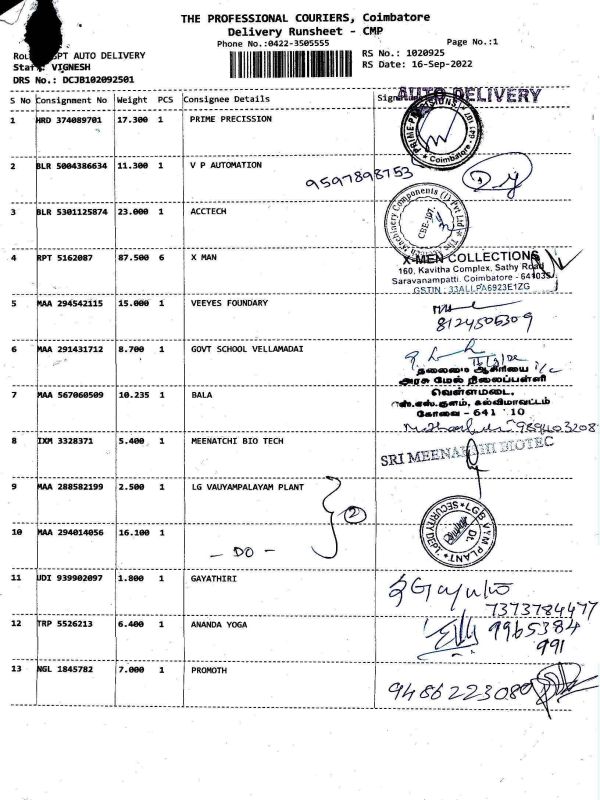 THE PROFESSIONAL COURIERS, Coimbatore
Delivery Runsheet - CMP
Phone No.:0422-3505555
Page No.:1
RS No.: 1020925
RS Date: 16-Sep-2022
AUTO DELIVERY
VIGNESH
DRS No.: DCJB102092501
S No Consignment No Weight PCS Consignee Details
AUTO DELIVERY
1 HRD 374089701 17.300 1 PRIME PRECISSION
PRIME PRECISIONS
Coimbatore - 641
2 BLR 5004386634 11.300 1 V P AUTOMATION
9597898753
3 BLR 5301125874 23.000 1 ACCTECH
Machinery Components (I) Pvt Ltd
CBE-107.
4 RPT 5162087 87.500 6 X MAN
X-MEN COLLECTIONS
160, Kavitha Complex, Sathy Road
Saravanampatti, Coimbatore - 641035
GSTIN : 33ALLPA6923E1ZG
5 MAA 294542115 15.000 1 VEEYES FOUNDARY
8124505309
6 MAA 291431712 8.700 1 GOVT SCHOOL VELLAMADAI
தலைமை ஆசிரியை
அரசு மேல் நிலைப்பள்ளி
7 MAA 567060509 10.235 1 BALA
வெள்ளமடை,
எஸ்.எஸ்.குளம், கல்விமாவட்டம்
கோவை - 641 10
9894403208
8 IXM 3328371 5.400 1 MEENATCHI BIO TECH
SRI MEENAKSHI BIOTEC
9 MAA 288582199 2.500 1 LG VAUYAMPALAYAM PLANT
2
LGB VYM PLANT
SECURITY DEPT.
Dt.
10 MAA 294014056 16.100 1
- DO -
11 UDI 939902097 1.800 1 GAYATHIRI
7373784477
12 TRP 5526213 6.400 1 ANANDA YOGA
9965384
991
13 NGL 1845782 7.000 1 PROMOTH
9486223080